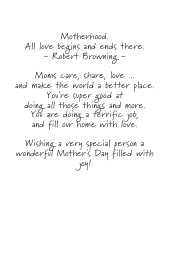 Motherhood.
All love begins and ends there.
- Robert Browning -
Moms care, share, love ...
and make the world a better place.
You're super good at
doing all those things and more.
You are doing a terrific job,
and fill our home with love.
Wishing a very special person a
wonderful Mother's Day filled with
joy!